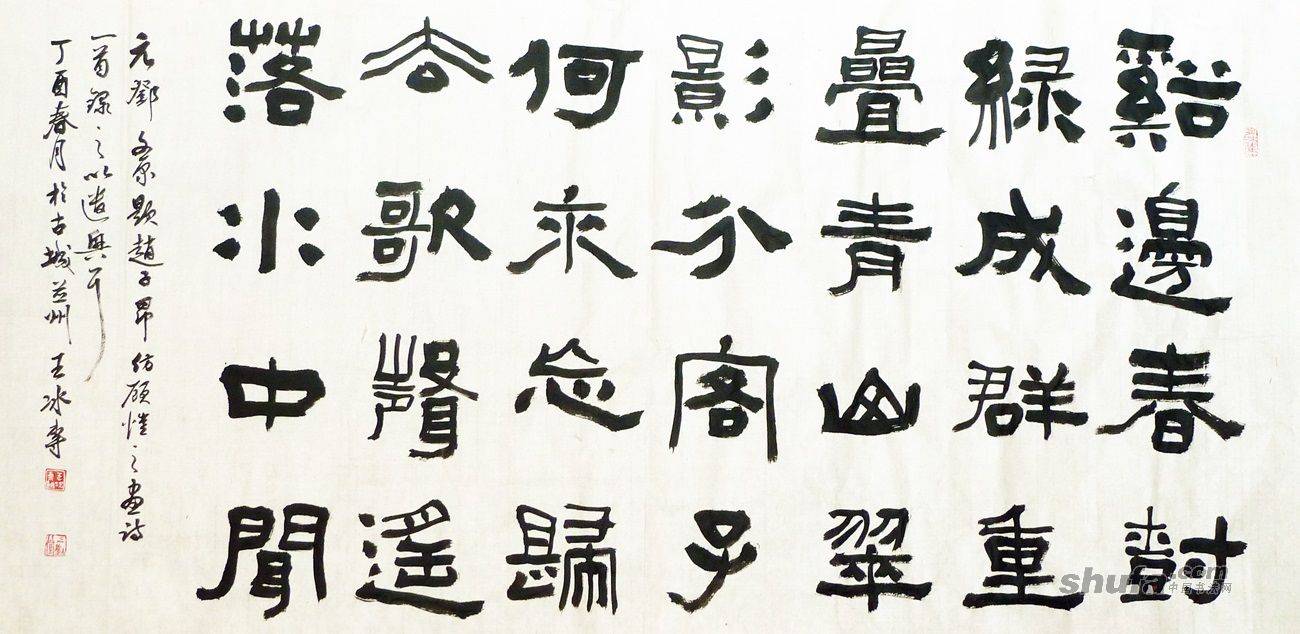 谿邊春樹
綠成群重
疊青山翠
影分客子
何來忘歸
去歌聲遙
落水中聞
元鄧文原題趙子昂仿顧愷之畫詩
一首錄之以遣興耳
丁酉春月於古城 州 王冰書
中国书法网